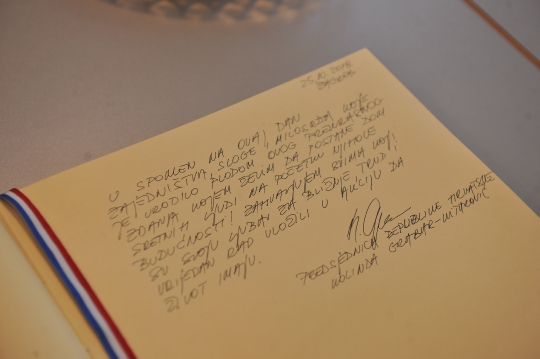 25.10.2018.
ZAGREB
U SPOMEN NA OVAJ DAN
ZAJEDNIŠTVA, SLOGE I MILOSRĐA KOJE
JE URODILO PLODOM OVOG PREKRASNOG
ZDANJA KOJEM ŽELIM DA POSTANE DOM
SRETNIH LJUDI NA POČETKU NJIHOVE
BUDUĆNOSTI! ZAHVALJUJEM SVIMA KOJI
SU SVOJU LJUBAV ZA BLIŽNJE, TRUD I
VRIJEDAN RAD ULOŽILI U AKCIJU DA
ŽIVOT IMAJU.
PREDSJEDNICA REPUBLIKE HRVATSKE
KOLINDA GRABAR-KITAROVIĆ